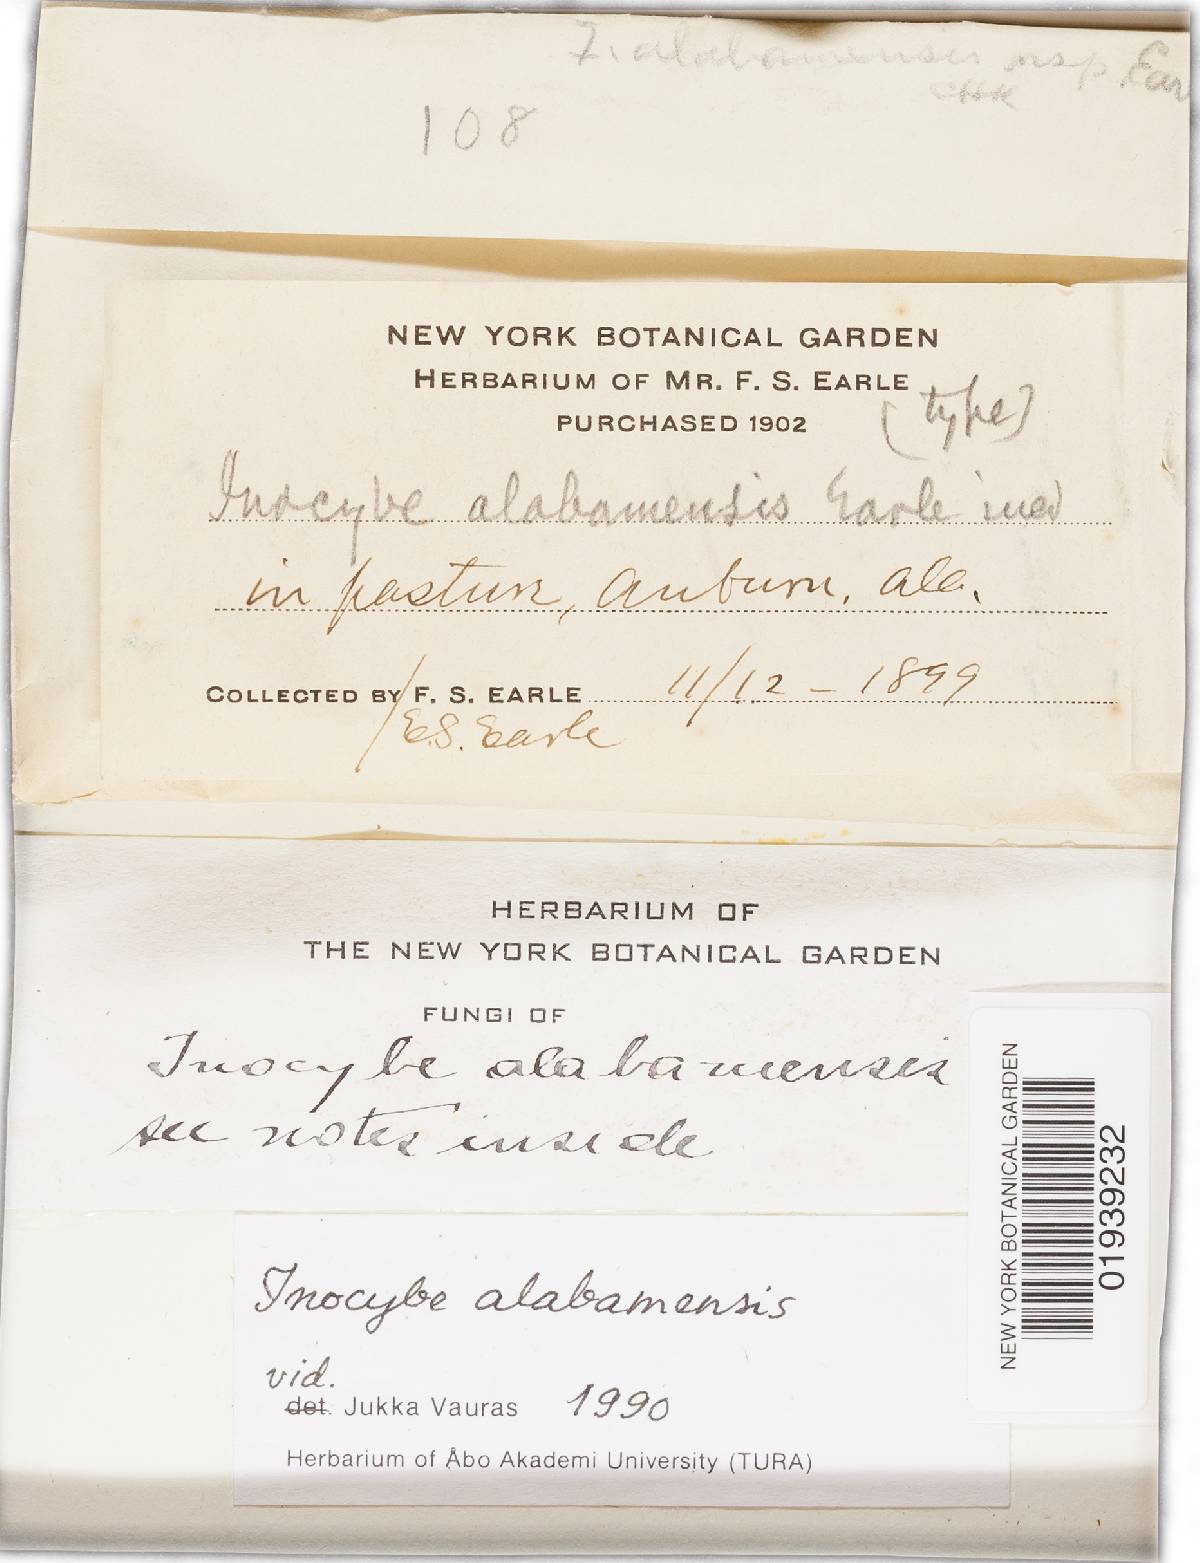 I. alabamensis nsp. Ear
CHK
108
NEW YORK BOTANICAL GARDEN
HERBARIUM OF MR. F. S. EARLE
(type)
PURCHASED 1902
Inocybe alabamensis Earle ined
in pasture, Auburn, Ala.
COLLECTED BY F. S. EARLE 11/12 - 1899
E.S. Earle
HERBARIUM OF
THE NEW YORK BOTANICAL GARDEN
FUNGI OF
Inocybe alabamensis
see notes inside
NEW YORK BOTANICAL GARDEN
01939232
Inocybe alabamensis
vid.
det. Jukka Vauras 1990
Herbarium of Åbo Akademi University (TURA)